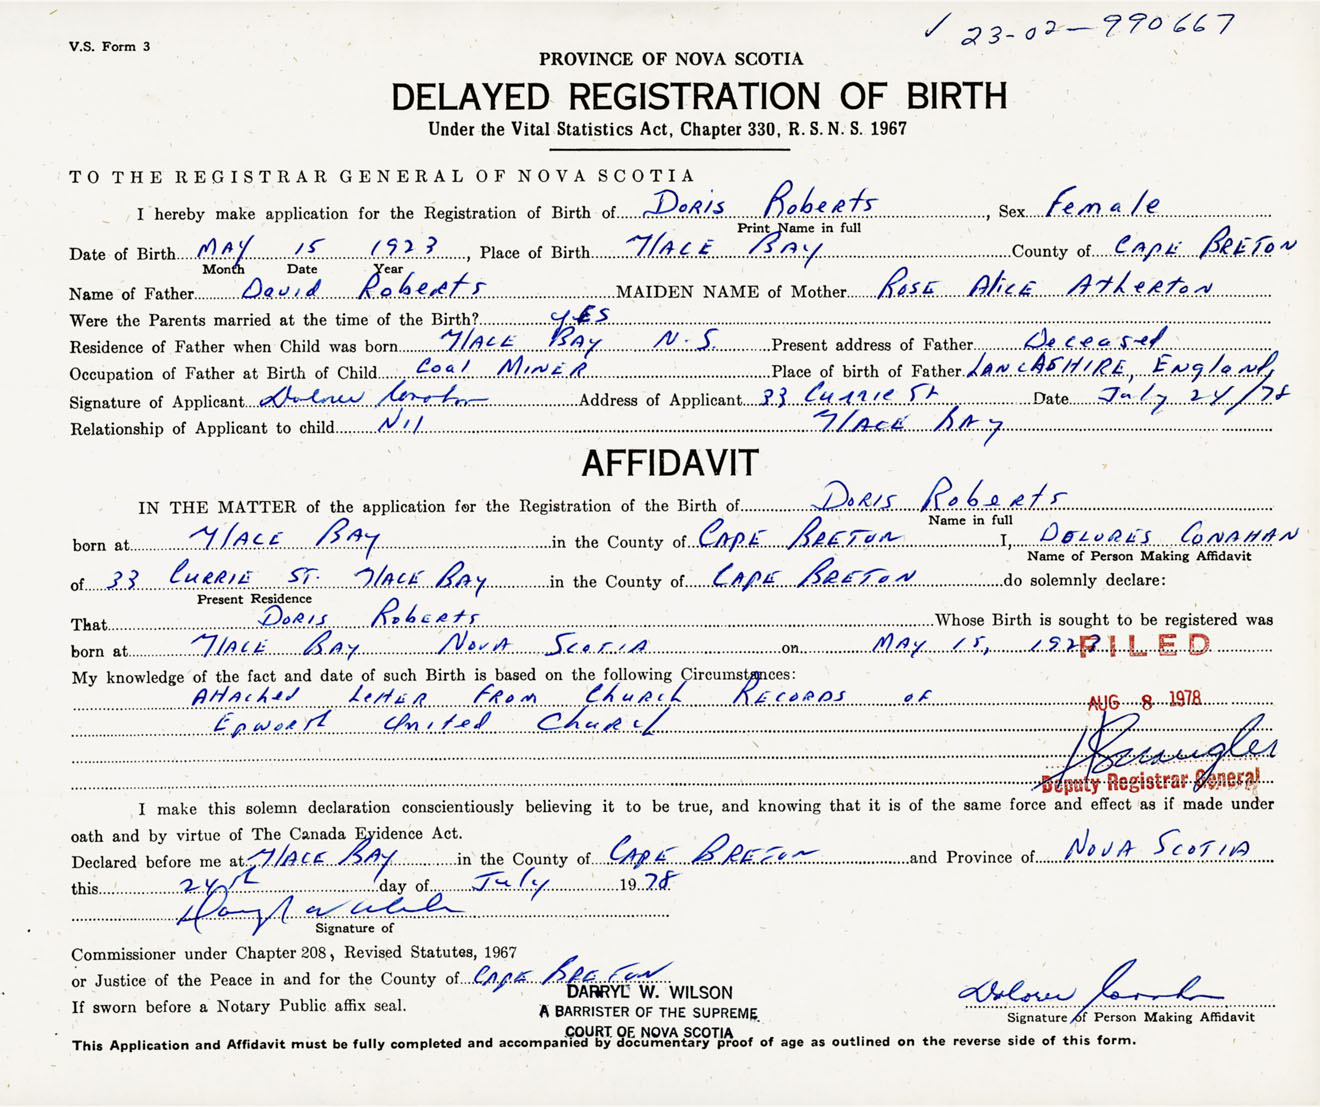 V.S. Form 3
✓ 23-02-990667
PROVINCE OF NOVA SCOTIA
DELAYED REGISTRATION OF BIRTH
Under the Vital Statistics Act, Chapter 330, R.S.N.S. 1967
TO THE REGISTRAR GENERAL OF NOVA SCOTIA
I hereby make application for the Registration of Birth of Doris Roberts, Sex Female
Print Name in full
Date of Birth May 15 1923, Place of Birth Glace Bay County of Cape Breton
Month Date Year
Name of Father David Roberts MAIDEN NAME of Mother Rose Alice Atherton
Were the Parents married at the time of the Birth? yes
Residence of Father when Child was born Glace Bay N.S. Present address of Father Deceased
Occupation of Father at Birth of Child Coal Miner Place of birth of Father Lancashire, England
Signature of Applicant Dolores Conahan Address of Applicant 33 Currie St Date July 24/78
Relationship of Applicant to child Nil Glace Bay
AFFIDAVIT
IN THE MATTER of the application for the Registration of the Birth of Doris Roberts
Name in full
born at Glace Bay in the County of Cape Breton I, Dolores Conahan
Name of Person Making Affidavit
of 33 Currie St. Glace Bay in the County of Cape Breton do solemnly declare:
Present Residence
That Doris Roberts Whose Birth is sought to be registered was
born at Glace Bay Nova Scotia on May 15, 1923
FILED
My knowledge of the fact and date of such Birth is based on the following Circumstances:
Attached letter from Church Records of
AUG 8 1978
Epworth United Church
Deputy Registrar General
I make this solemn declaration conscientiously believing it to be true, and knowing that it is of the same force and effect as if made under
oath and by virtue of The Canada Evidence Act.
Declared before me at Glace Bay in the County of Cape Breton and Province of Nova Scotia
this 24th day of July 1978
Signature of
Commissioner under Chapter 208, Revised Statutes, 1967
or Justice of the Peace in and for the County of Cape Breton
DARRYL W. WILSON
If sworn before a Notary Public affix seal.
A BARRISTER OF THE SUPREME
COURT OF NOVA SCOTIA
Dolores Conahan
Signature of Person Making Affidavit
This Application and Affidavit must be fully completed and accompanied by documentary proof of age as outlined on the reverse side of this form.